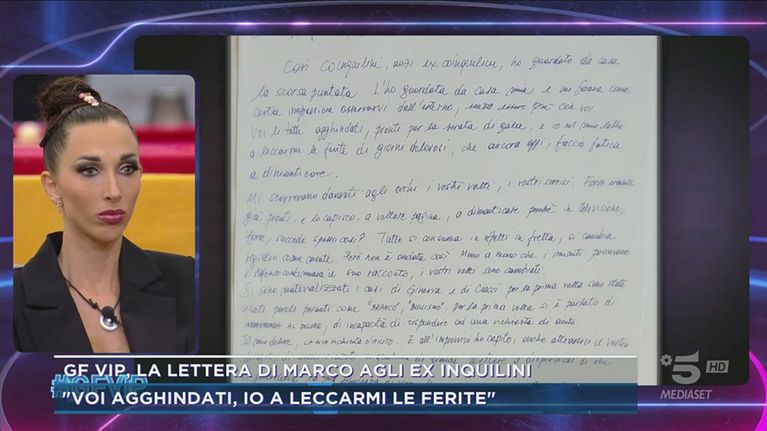 Cari Coinquilini, anzi ex coinquilini, ho guardato da casa
la scorsa puntata. L'ho guardata da casa mia e mi faceva una
certa impressione osservarvi dall'esterno, senza essere più con voi.
Voi lì tutti agghindati, pronti per la serata di gala, e io nel mio letto
a leccarmi le ferite di giorni dolorosi, che ancora oggi, faccio fatica
a dimenticare.
Mi scorrevano davanti agli occhi i vostri volti, i vostri sorrisi. Forse
già pronti, e lo capisco, a voltare pagina, a dimenticare perché in televisione,
forse, succede spesso così? Tutto si consuma in effetti in fretta, si cambia
Però non è andata così. Mano a mano che i minuti passavano
e il suo racconto, i vostri volti sono cambiati.
Si sono materializzati i casi di Ginevra e di Ciacci per la prima volta sono state
usate parole pesanti come "BRANCO", "BULLISMO", per la prima volta si è parlato di
di incapacità di rispondere ad una richiesta di aiuto.
Il mio dolore, la mia richiesta d'aiuto. E all'improvviso ho capito, anche attraverso il vostro
GF VIP, LA LETTERA DI MARCO AGLI EX INQUILINI
#GFVIP
"VOI AGGHINDATI, IO A LECCARMI LE FERITE"
5 HD
MEDIASET